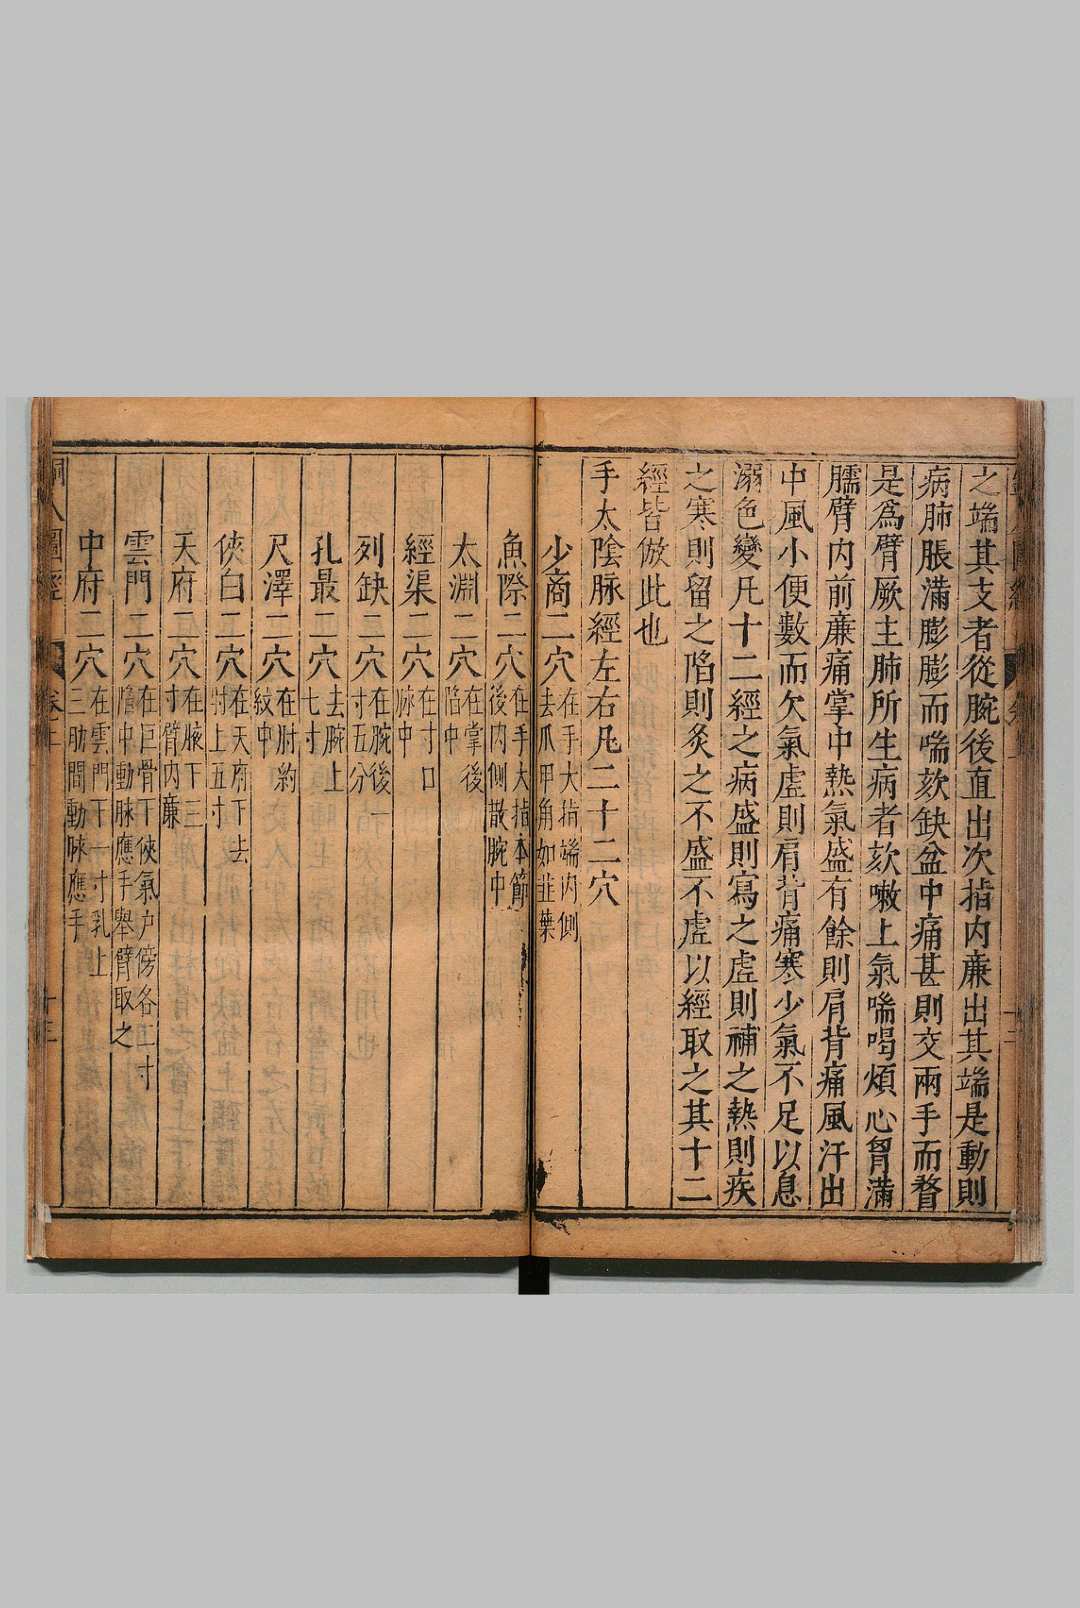 之端其支者從腕後直出次指内廉出其端是動則
病肺脹滿膨膨而喘欬缺盆中痛甚則交兩手而瞀
是為臂厥主肺所生病者欬嗽上氣喘喝煩心胷滿
臑臂内前廉痛掌中熱氣盛有餘則肩背痛風汗出
中風小便數而欠氣虚則肩背痛寒少氣不足以息
溺色變凡十二經之病盛則寫之虚則補之熱則疾
之寒則留之陷則灸之不盛不虚以經取之其十二
經皆倣此也
手太陰脉經左右凡二十二穴
少商二穴在手大指端内側
去爪甲角如韭葉
魚際二穴在手大指本節
後内側散腕中
太淵二穴在掌後
陷中
經渠二穴在寸口
脉中
列缺二穴在腕後一
寸五分
孔最二穴去腕上
七寸
尺澤二穴在肘約
紋中
俠白二穴在天府下去
肘上五寸
天府二穴在腋下三
寸臂内廉
雲門二穴在巨骨下俠氣户傍各二寸
陷中動脉應手舉臂取之
中府二穴在雲門下一寸乳上
三肋間動脉應手
銅人圖經 卷上 十三